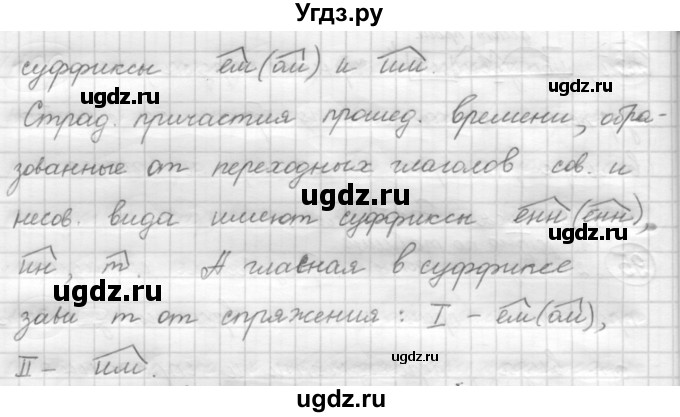 Угдз.ру
суффиксы ем(ом) и им.
ugdz.ru
ugdz.ru
Страд. причастия прошед. времени, обра-
зованные от переходных глаголов сов. и
ugdz.ru
несов. вида имеют суффиксы енн(ённ),
ugdz.ru
ин, т. А гласная в суффиксе
зави т от спряжения: I - ем(ом),
ugdz.ru
ugdz.ru
II - им.
ugdz.ru
ugdz.ru